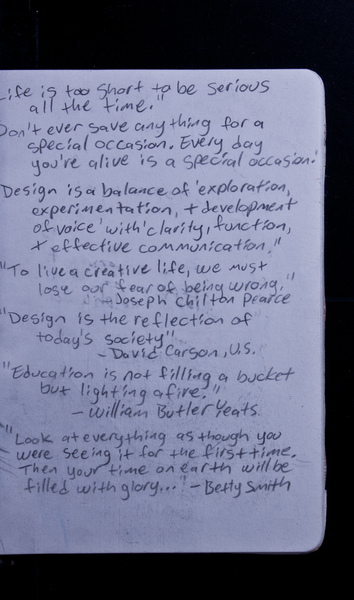 Life is too short to be serious
all the time."
Don't ever save anything for a
special occasion. Every day
you're alive is a special occasion.
Design is a balance of 'exploration,
experimentation, + development
of voice' with 'clarity, function,
+ effective communication."
"To live a creative life, we must
lose our fear of being wrong."
- Joseph Chilton Pearce
"Design is the reflection of
today's society"
- David Carson, U.S.
"Education is not filling a bucket
but lighting a fire."
- William Butler Yeats.
"Look at everything as though you
were seeing it for the first time.
Then your time on earth will be
filled with glory..." - Betty Smith